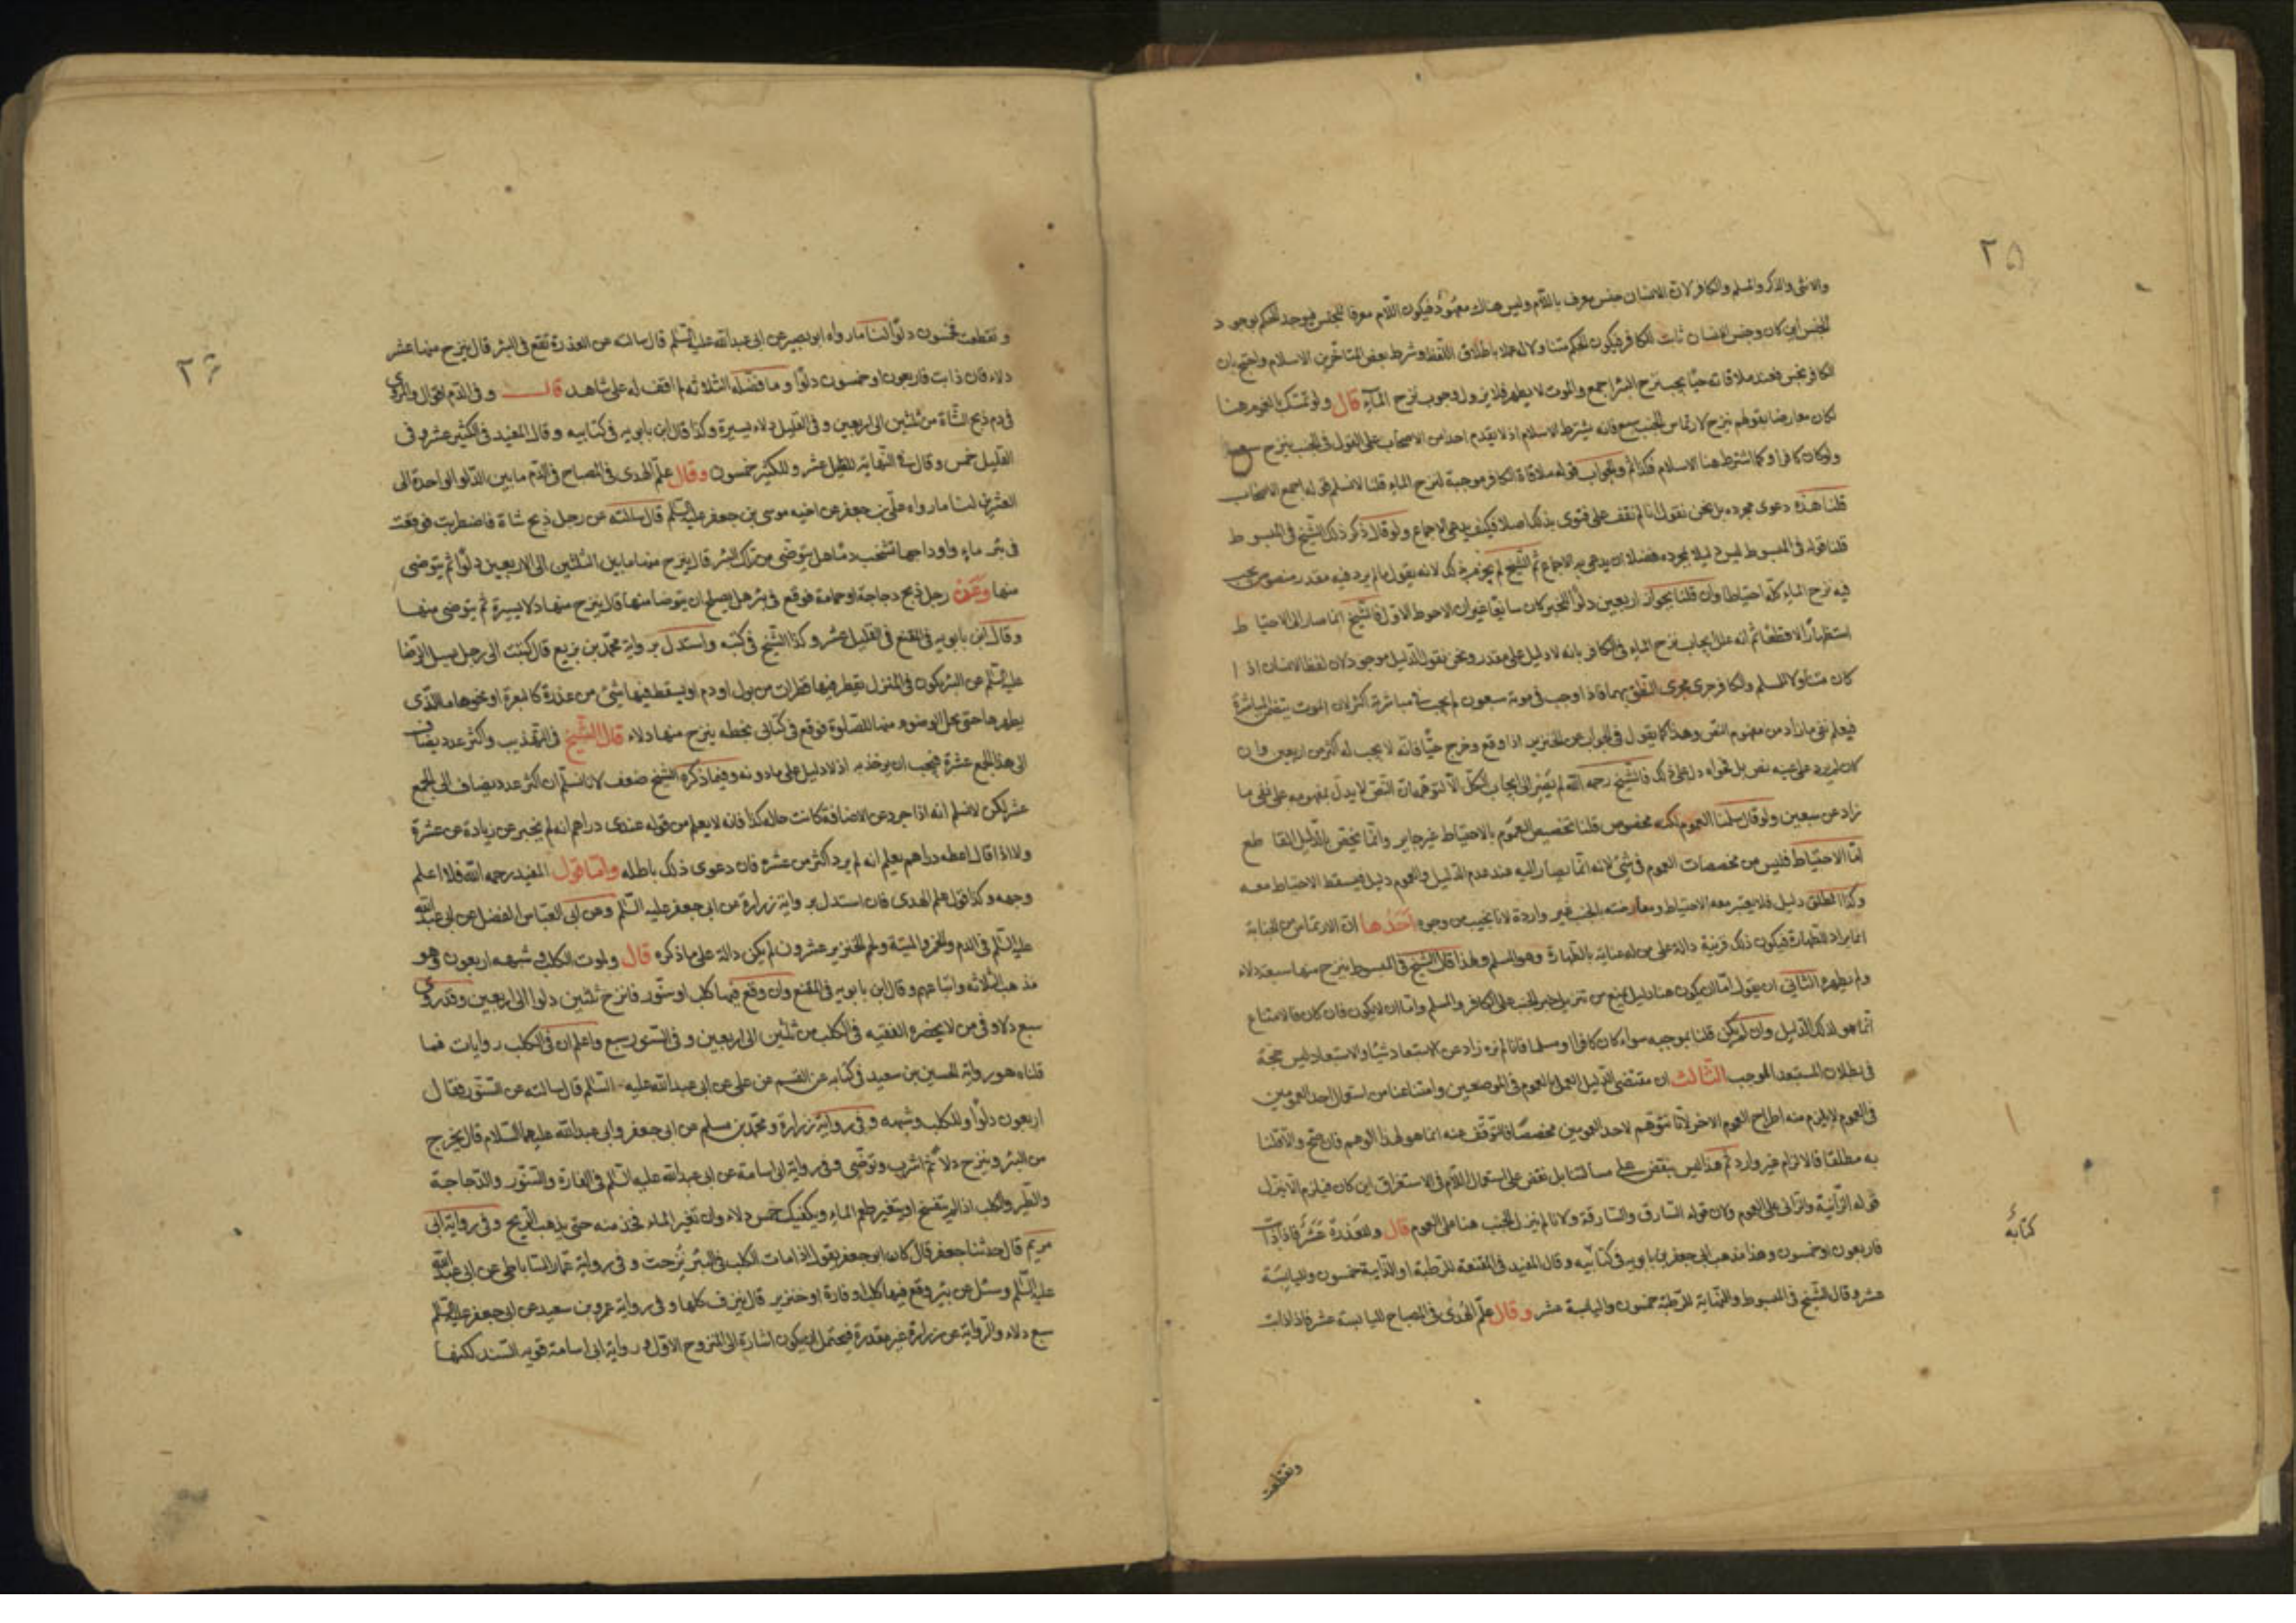 ٢٥
والانثى والذكر والمسلم والكافر لان الانسان جنس معرف باللام وليس هناك معهود فيكون اللام معرفا للجنس فيوجد الحكم بوجود
الجنس اين كان وجنس الانسان ثابت للكافر فيكون الحكم متناولا له عملا باطلاق اللفظ وشرط بعض المتاخرين الاسلام واحتج بان
الكافر نجس فعند ملاقاته حيا يجب نزح البئر اجمع والموت لا يطهر فلا يزول وجوب نزح الماء قال ولو تمسك بالعموم هنا
لكان معارضا بقولهم ينزح لارتماس الجنب سبع فانه يشترط الاسلام اذ لا يقدم احد من الاصحاب على القول في الجنب ينزح سبع
ولو كان كافرا وكما اشترط هنا الاسلام فكذا ثم والجواب قوله ملاقاة الكافر موجبة لنزح الماء قلنا لا نسلم قوله اجمع الاصحاب
قلنا هذه دعوى مجرده بل نحن نقول انا لم نقف على فتوى بذلك اصلا فكيف يدعى الاجماع ولو قال ذكر ذلك الشيخ في المبسوط
قلنا قوله في المبسوط ليس دليلا بمجرده فضلا ان يدعى به الاجماع ثم الشيخ لم يجزم بذلك لانه يقول ما لم يرد فيه مقدر منصوص يجب
فيه نزح الماء كله احتياطا وان قلنا بجواز اربعين دلوا للخبر كان سايغا غير ان الاحوط الاول فالشيخ انما صار الى الاحتياط
استظهارا لا قطعا ثم انه علل ايجاب نزح الماء في الكافر بانه لا دليل على مقدر ونحن نقول الدليل موجود لان لفظ الانسان اذا
كان متناولا للمسلم والكافر جرى مجرى النطق بهما فاذا وجب في موته سبعون لم يجب في مباشرته اكثر لان الموت يتضمن المباشرة
فيعلم نفي ما زاد من مفهوم النص وهذا كما يقول في الجواب عن الخنزير اذا وقع وخرج حيا فانه لا يجب له اكثر من اربعين وان
كان لم يرد على عينه نص بل فحواه دل على ذلك فالشيخ رحمه الله لم يصر الى ايجاب الكل الا لتوهمه ان النص لا يدل بمفهومه على نفي ما
زاد عن سبعين ولو قال سلمنا العموم لكنه مخصوص قلنا تخصيص العموم بالاحتياط غير جايز وانما يخص بالدليل القاطع
اما الاحتياط فليس من مخصصات العموم في شئ لانه انما يصار اليه عند عدم الدليل والعموم دليل فيسقط الاحتياط معه
وكذا المطلق دليل فلا يعتبر معه الاحتياط ومعارضته بالجنب غير واردة لانا نجيب من وجوه احدها ان الارتماس من الجنابة
انما يراد للطهارة فيكون ذلك قرينة دالة على من له عناية بالطهارة وهو المسلم ولهذا قال الشيخ في المبسوط ينزح منها سبعة دلاء
ولم يطهر الثاني ان يقول اما ان يكون هنا دليل يمنع من تنزيل خبر الجنب على الكافر والمسلم واما ان لا يكون فان كان فالامتناع
انما هو لذلك الدليل وان لم يكن قلنا بموجبه سواء كان كافرا او مسلما فانا لم نره زاد عن الاستبعاد شيئا والاستبعاد ليس حجة
في بطلان المستبعد الموجب الثالث ان مقتضى الدليل العمل بالعموم في الموضعين وامتناعنا من استعمال احد العمومين
في العموم لا يلزم منه اطراح العموم الاخر لانا نتوهم لاحد العمومين مخصصا فالتوقف عنه انما هو لهذا الوهم فان صح والا قلنا
به مطلقا فالالزام غير وارد ثم هذا ليس بنقض على مسالتنا بل نقض على استعمال اللام في الاستغراق اين كان فيلزم الا ينزل
قوله الزانية والزاني على العموم فان قوله السارق والسارقة ولانا لم ننزل الجنب هنا على العموم قال وللعذرة عشر فاذا ذابت
فاربعون او خمسون وهذا مذهب ابي جعفر بن بابويه في كتابيه وقال المفيد في المقنعة للرطبة او الذايبة خمسون ولليابسة
عشر وقال الشيخ في المبسوط والنهاية للرطبة خمسون ولليابسة عشر وقال علم الهدى في المصباح لليابسة عشر فاذا ذابت
كتابه
وتقطعت
وتقطعت فخمسون دلوا لنا ما رواه ابو بصير عن ابي عبد الله عليه السلم قال سالته عن العذرة تقع في البئر قال ينزح منها عشر
دلاء فان ذابت فاربعون او خمسون دلوا وما فصله الثلاثة لم اقف له على شاهد قال وفي الدم اقوال والمروي
في دم ذبح الشاة من ثلثين الى اربعين وفي القليل دلاء يسيرة وكذا قال ابن بابويه في كتابيه وقال المفيد في الكثير عشر وفي
القليل خمس وقال في النهاية للقليل عشر وللكثير خمسون وقال علم الهدى في المصباح في الدم ما بين الدلو الواحدة الى
العشرين لنا ما رواه علي بن جعفر عن اخيه موسى بن جعفر عليه السلم قال سالته عن رجل ذبح شاة فاضطربت فوقعت
في بئر ماء واوداجها تشخب دما هل يتوضى من تلك البئر قال ينزح منها ما بين الثلثين الى الاربعين دلوا ثم يتوضى
منها وعن رجل ذبح دجاجة او حمامة فوقع في بئر هل يصلح ان يتوضا منها قال ينزح منها دلاء يسيرة ثم يتوضى منها
وقال ابن بابويه في المقنع في القليل عشر وكذا الشيخ في كتبه واستدل برواية محمد بن بزيع قال كتبت الى رجل يسل الرضا
عليه السلم عن البئر يكون في المنزل يقطر فيها قطرات من بول او دم او يسقط فيها شئ من عذرة كالبعرة او نحوها ما الذي
يطهرها حتى يحل الوضوء منها للصلوة فوقع في كتابي بخطه ينزح منها دلاء قال الشيخ في التهذيب واكثر عدد يضاف
الى هذا الجمع عشرة فيجب ان يوخذ به اذ لا دليل على ما دونه وفيما ذكره الشيخ ضعف لانا نسلم ان اكثر عدد يضاف الى الجمع
عشر لكن لا نسلم انه اذا جرد عن الاضافة كانت حاله كذا فانه لا يعلم من قوله عندي دراهم انه لم يخبر عن زيادة عن عشرة
ولا اذا قال اعطه دراهم يعلم انه لم يرد اكثر من عشرة فان دعوى ذلك باطله واما قول المفيد رحمه الله فلا اعلم
وجهه وكذا قول علم الهدى فان استدل برواية زرارة عن ابي جعفر عليه السلم وعن ابي العباس الفضل عن ابي عبد الله
عليه السلم في الدم والخمر والميتة ولحم الخنزير عشرون لم يكن دالة على ما ذكره قال ولموت الكلب وشبهه اربعون وهو
مذهب الثلاثة واتباعهم وقال ابن بابويه في المقنع وان وقع فيها كلب او سنور فانزح ثلثين دلوا الى اربعين وقد روي
سبع دلاء وفي من لا يحضره الفقيه في الكلب من ثلثين الى اربعين وفي السنور سبع واعلم ان في الكلب روايات فما
قلناه هو رواية الحسين بن سعيد في كتابه عن القسم عن علي عن ابي عبد الله عليه السلم قال سالته عن السنور فقال
اربعون دلوا وللكلب وشبهه وفي رواية زرارة ومحمد بن مسلم عن ابي جعفر وابي عبد الله عليهما السلام قال يخرج
من البئر وينزح دلاء ثم اشرب وتوضى وفي رواية ابي اسامة عن ابي عبد الله عليه السلم في الفارة والسنور والدجاجة
والطير والكلب اذا لم يتفسخ او يتغير طعم الماء ويكفيك خمس دلاء وان تغير الماء فخذ منه حتى يذهب الريح وفي رواية ابي
مريم قال حدثنا جعفر قال كان ابو جعفر يقول اذا مات الكلب في البئر نزحت وفي رواية عمار الساباطي عن ابي عبد الله
عليه السلم وسئل عن بئر وقع فيها كلب او فارة او خنزير قال ينزف كلها وفي رواية عمرو بن سعيد عن ابي جعفر عليه السلم
سبع دلاء والرواية عن زرارة غير مقدرة فيحتمل ان يكون اشارة الى المنزوح الاول ورواية ابي اسامة قوية السند لكنها